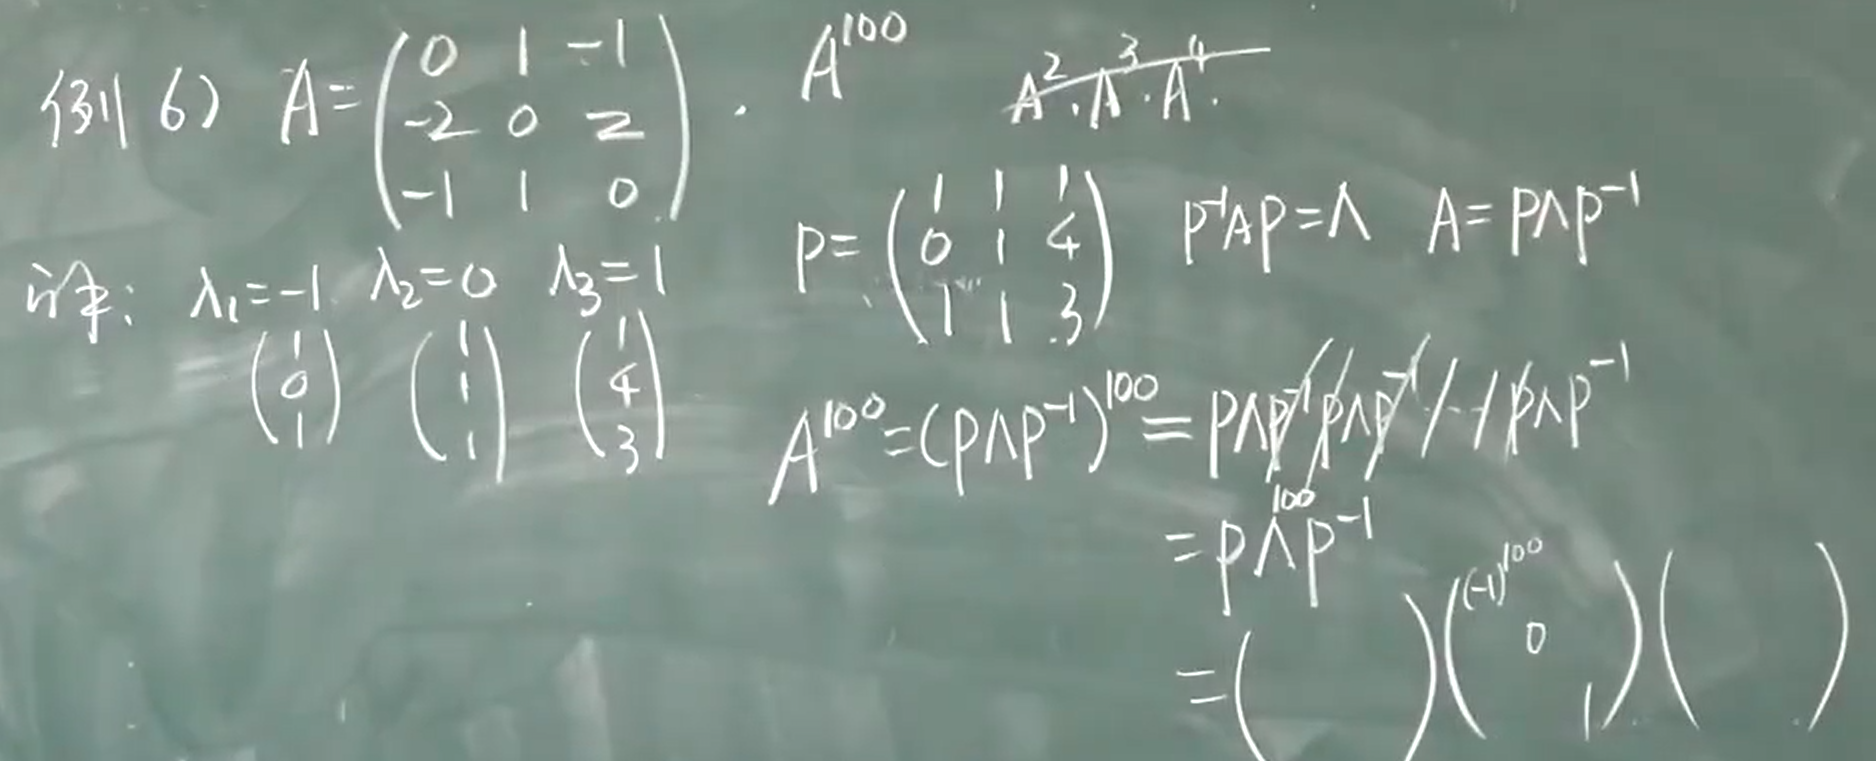 例6) A=(0 1 -1
-2 0 2
-1 1 0). A¹⁰⁰ A².A³.A⁴.
译: λ₁=-1 λ₂=0 λ₃=1
(1
0
1) (1
1
1) (1
4
3)
P=(1 1 1
0 1 4
1 1 3) P⁻¹AP=Λ A=PΛP⁻¹
A¹⁰⁰=(PΛP⁻¹)¹⁰⁰=PΛP⁻¹PΛP⁻¹/--/PΛP⁻¹
=PΛ¹⁰⁰P⁻¹
=( )((-1)¹⁰⁰
0
1)( )